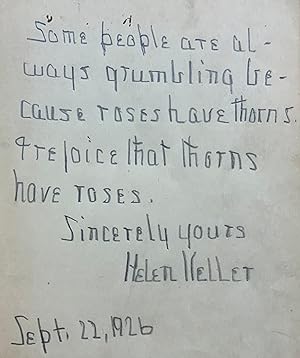 Some people are al-
ways grumbling be-
cause roses have thorns.
I rejoice that thorns
have roses.
Sincerely yours
Helen Keller
Sept. 22, 1926